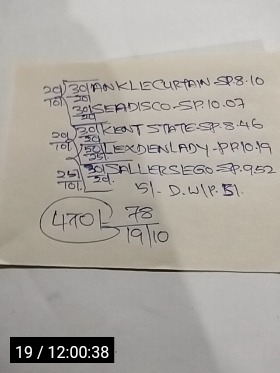 20/ 30/ ANKLECURTAIN-SP.8.10
10/ 20/
30/ SEADISCO-SP.10.07
20/
20/ 30/ KENT STATE-SP.8.46
10/ 30/
50/ LEXDENLADY-PP.10.19
25/
25/ 30/ SALLERSEGO-SP.9.52
10/. 20/.
5/- D.W/P. 5/.
470/- 78
19/10
19 / 12:00:38